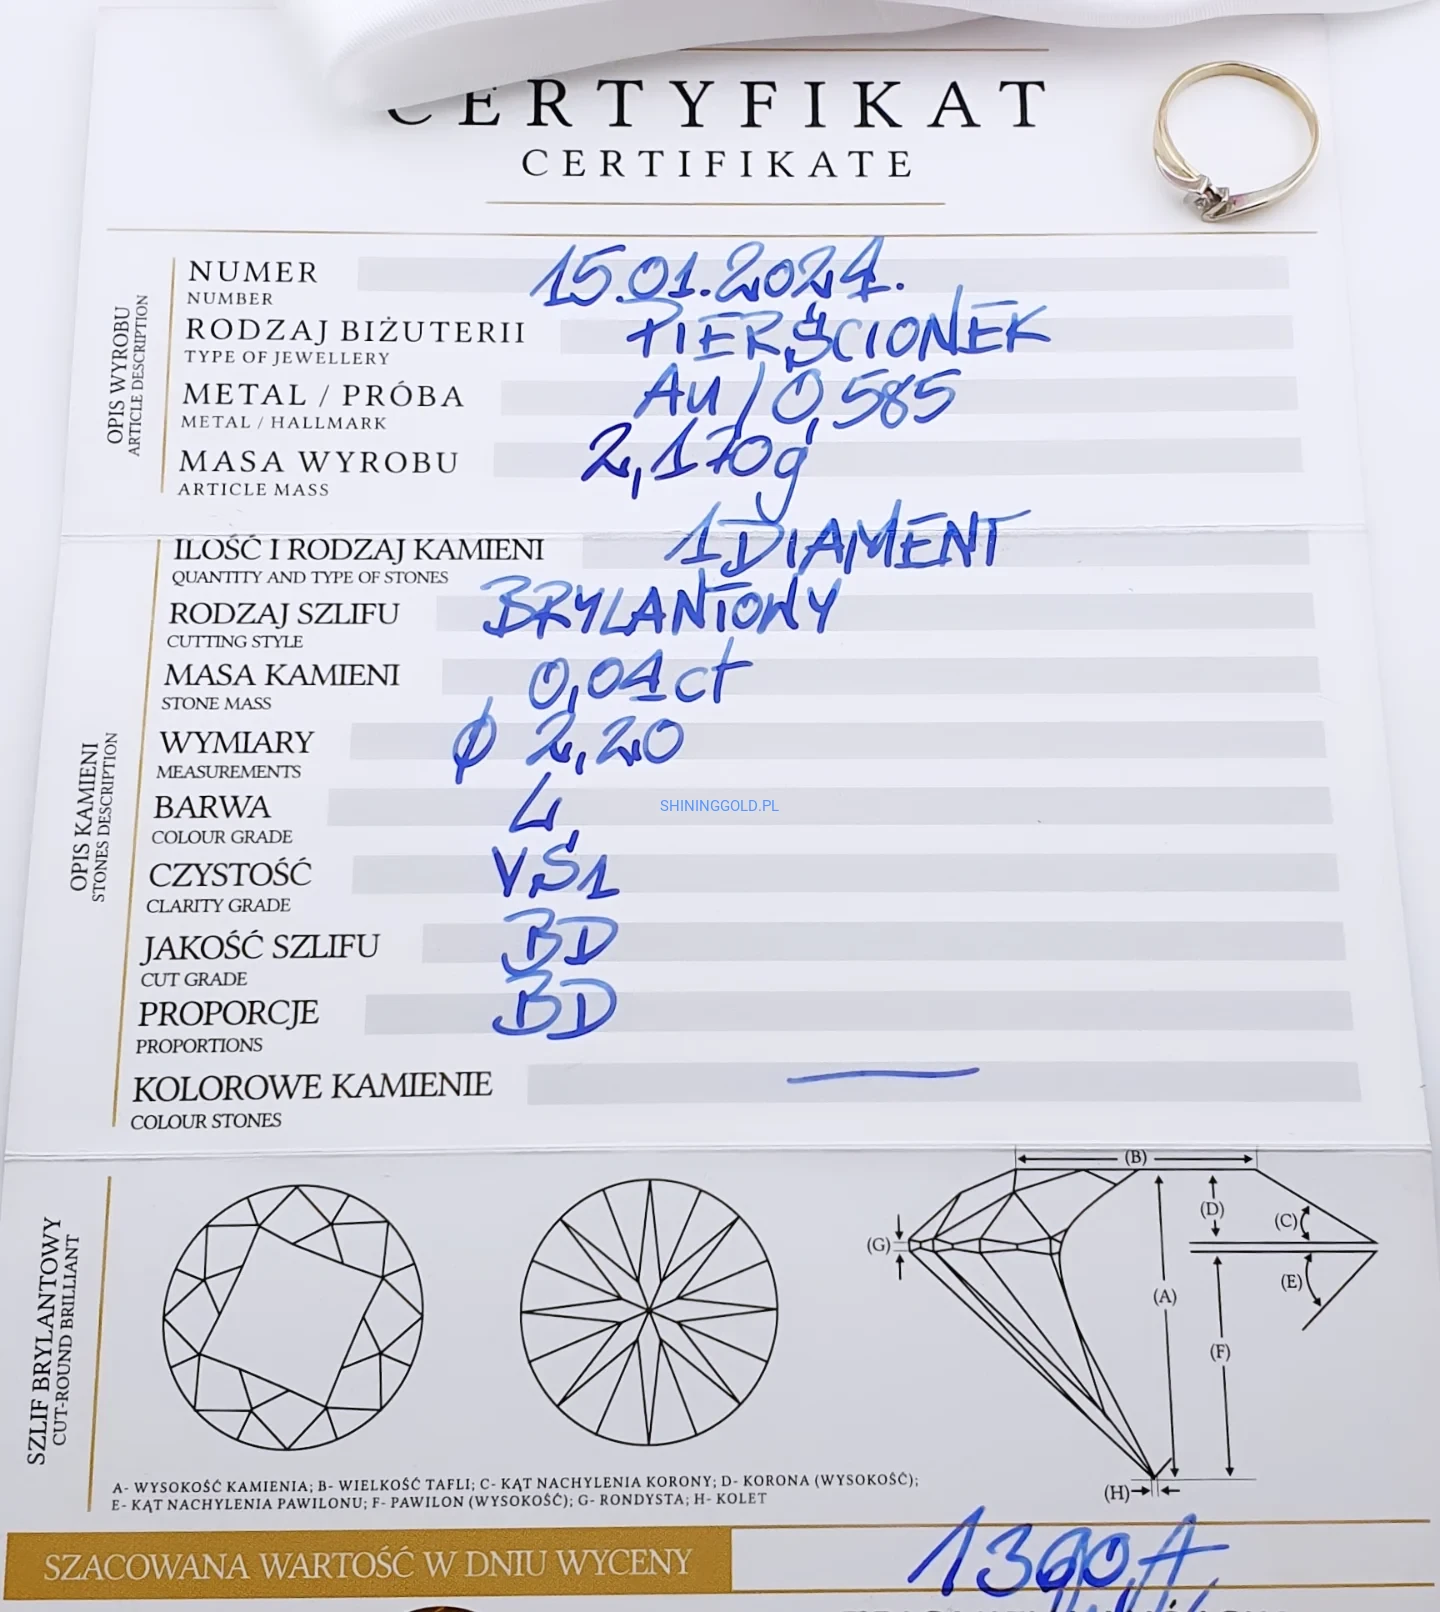 CERTYFIKAT
CERTIFIKATE
OPIS WYROBU
ARTICLE DESCRIPTION
NUMER 15.01.2024.
NUMBER
RODZAJ BIŻUTERII PIERŚCIONEK
TYPE OF JEWELLERY
METAL / PRÓBA Au/0,585
METAL / HALLMARK
MASA WYROBU 2,170g
ARTICLE MASS
OPIS KAMIENI
STONES DESCRIPTION
ILOŚĆ I RODZAJ KAMIENI 1 DIAMENT
QUANTITY AND TYPE OF STONES
RODZAJ SZLIFU BRYLANTOWY
CUTTING STYLE
MASA KAMIENI 0,04ct
STONE MASS
WYMIARY ϕ 2,20
MEASUREMENTS
BARWA
COLOUR GRADE
SHININGGOLD.PL
CZYSTOŚĆ VS1
CLARITY GRADE
JAKOŚĆ SZLIFU BD
CUT GRADE
PROPORCJE BD
PROPORTIONS
KOLOROWE KAMIENIE —
COLOUR STONES
SZLIF BRYLANTOWY
CUT-ROUND BRILLIANT
(B)
(D)
(C)
(G)
(E)
(A)
(F)
(H)
A- WYSOKOŚĆ KAMIENIA; B- WIELKOŚĆ TAFLI; C- KĄT NACHYLENIA KORONY; D- KORONA (WYSOKOŚĆ);
E- KĄT NACHYLENIA PAWILONU; F- PAWILON (WYSOKOŚĆ); G- RONDYSTA; H- KOLET
SZACOWANA WARTOŚĆ W DNIU WYCENY